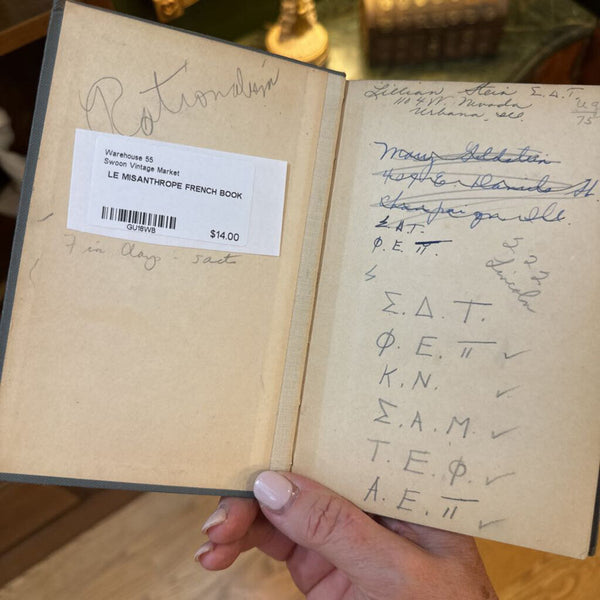 Rationalism
Warehouse 55
Swoon Vintage Market
LE MISANTHROPE FRENCH BOOK
GU16WB
$14.00
7 in
Lillian Stein Σ.Δ.T.
1104 W. Nevada
Urbana, Ill.
75
Mary Goldstein
409 E. Daniels St.
Champaign Ill.
Σ.Δ.T.
Φ.E.π.
522
Lincoln
Σ.Δ.T.
Φ.E.π ✓
K.N. ✓
Σ.A.M. ✓
T.E.Φ. ✓
A.E.π ✓